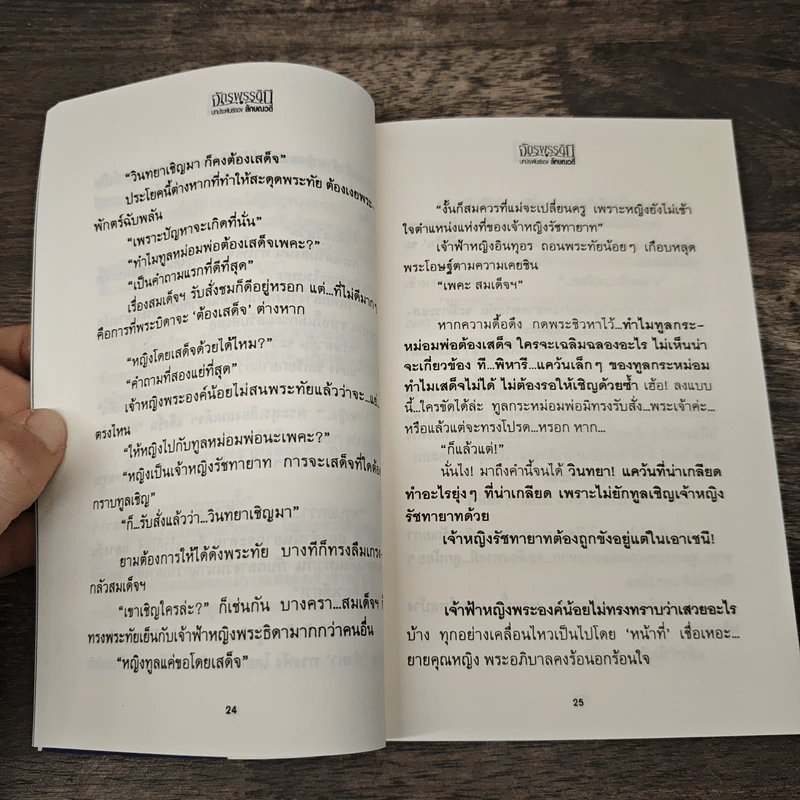 จักรพรรดิ
บทประพันธ์ของ ลักษณวดี
“วินทยาเชิญมา ก็คงต้องเสด็จ”
ประโยคนี้ต่างหากที่ทำให้สะดุดพระทัย ต้องเงยพระ-
พักตร์ฉับพลัน
“เพราะปัญหาจะเกิดที่นั่น”
“ทำไมทูลหม่อมพ่อต้องเสด็จเพคะ?”
“เป็นคำถามแรกที่ดีที่สุด”
เรื่องสมเด็จฯ รับสั่งชมก็ดีอยู่หรอก แต่...ที่ไม่ดีมากๆ
คือการที่พระบิดาจะ ‘ต้องเสด็จ’ ต่างหาก
“หญิงโดยเสด็จด้วยได้ไหม?”
“คำถามที่สองแย่ที่สุด”
เจ้าหญิงพระองค์น้อยไม่สนพระทัยแล้วว่าจะ...แย่...
ตรงไหน
“ให้หญิงไปกับทูลหม่อมพ่อนะเพคะ?”
“หญิงเป็นเจ้าหญิงรัชทายาท การจะเสด็จที่ใดต้อง
กราบทูลเชิญ”
“ก็...รับสั่งแล้วว่า...วินทยาเชิญมา”
ยามต้องการให้ได้ดังพระทัย บางทีก็ทรงลืมเกรง-
กลัวสมเด็จฯ
“เขาเชิญใครล่ะ?” ก็เช่นกัน บางครา...สมเด็จฯ ก็
ทรงพระทัยเย็นกับเจ้าฟ้าหญิงพระธิดามากกว่าคนอื่น
“หญิงทูลแค่ขอโดยเสด็จ”
24
จักรพรรดิ
บทประพันธ์ของ ลักษณวดี
“งั้นก็สมควรที่แม่จะเปลี่ยนครู เพราะหญิงยังไม่เข้า
ใจตำแหน่งแห่งที่ของเจ้าหญิงรัชทายาท”
เจ้าฟ้าหญิงอินทุอร ถอนพระทัยน้อยๆ เกือบหลุด
พระโอษฐ์ตามความเคยชิน
“เพคะ สมเด็จฯ”
หากความดื้อดึง กดพระชิวหาไว้...ทำไมทูลกระ-
หม่อมพ่อต้องเสด็จ ใครจะเฉลิมฉลองอะไร ไม่เห็นน่า
จะเกี่ยวข้อง ที...พิหารี...แคว้นเล็กๆ ของทูลกระหม่อม
ทำไมเสด็จไม่ได้ ไม่ต้องรอให้เชิญด้วยซ้ำ เฮ้อ! ลงแบบ
นี้...ใครขัดได้ล่ะ ทูลกระหม่อมพ่อมิทรงรับสั่ง...พระเจ้าค่ะ...
หรือแล้วแต่จะทรงโปรด...หรอก หาก...
“ก็แล้วแต่!”
นั่นไง! มาถึงคำนี้จนได้ วินทยา! แคว้นที่น่าเกลียด
ทำอะไรยุ่งๆ ที่น่าเกลียด เพราะไม่ยักทูลเชิญเจ้าหญิง
รัชทายาทด้วย
เจ้าหญิงรัชทายาทต้องถูกขังอยู่แต่ในเอาเชนี!
เจ้าฟ้าหญิงพระองค์น้อยไม่ทรงทราบว่าเสวยอะไร
บ้าง ทุกอย่างเคลื่อนไหวเป็นไปโดย ‘หน้าที่’ เชื่อเหอะ...
ยายคุณหญิง พระอภิบาลคงร้อนอกร้อนใจ
25